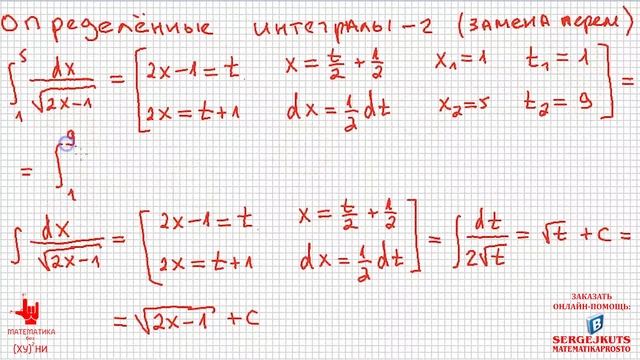 Определённые интегралы-2 (замена перем)
∫₁⁵ dx/√(2x-1) = [2x-1=t x=t/2+1/2 x₁=1 t₁=1
2x=t+1 dx=1/2 dt x₂=5 t₂=9] =
= ∫₁⁹
∫ dx/√(2x-1) = [2x-1=t x=t/2+1/2
2x=t+1 dx=1/2 dt] = ∫ dt/(2√t) = √t + C =
= √(2x-1) + C
МАТЕМАТИКА
без
(ХУ)²НИ
ЗАКАЗАТЬ
ОНЛАЙН-ПОМОЩЬ:
B
SERGEJKUTS
MATEMATIKAPROSTO